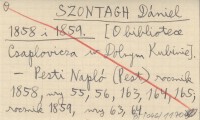 SZONTAGH Dániel
1858 i 1859. [O bibliotece
Csaplovicsa w Dolnym Kubinie].
- Pesti Napló (Pest) rocznik
1858, nry 55, 56, 163, 164, 165;
rocznik 1859, nry 63, 64.